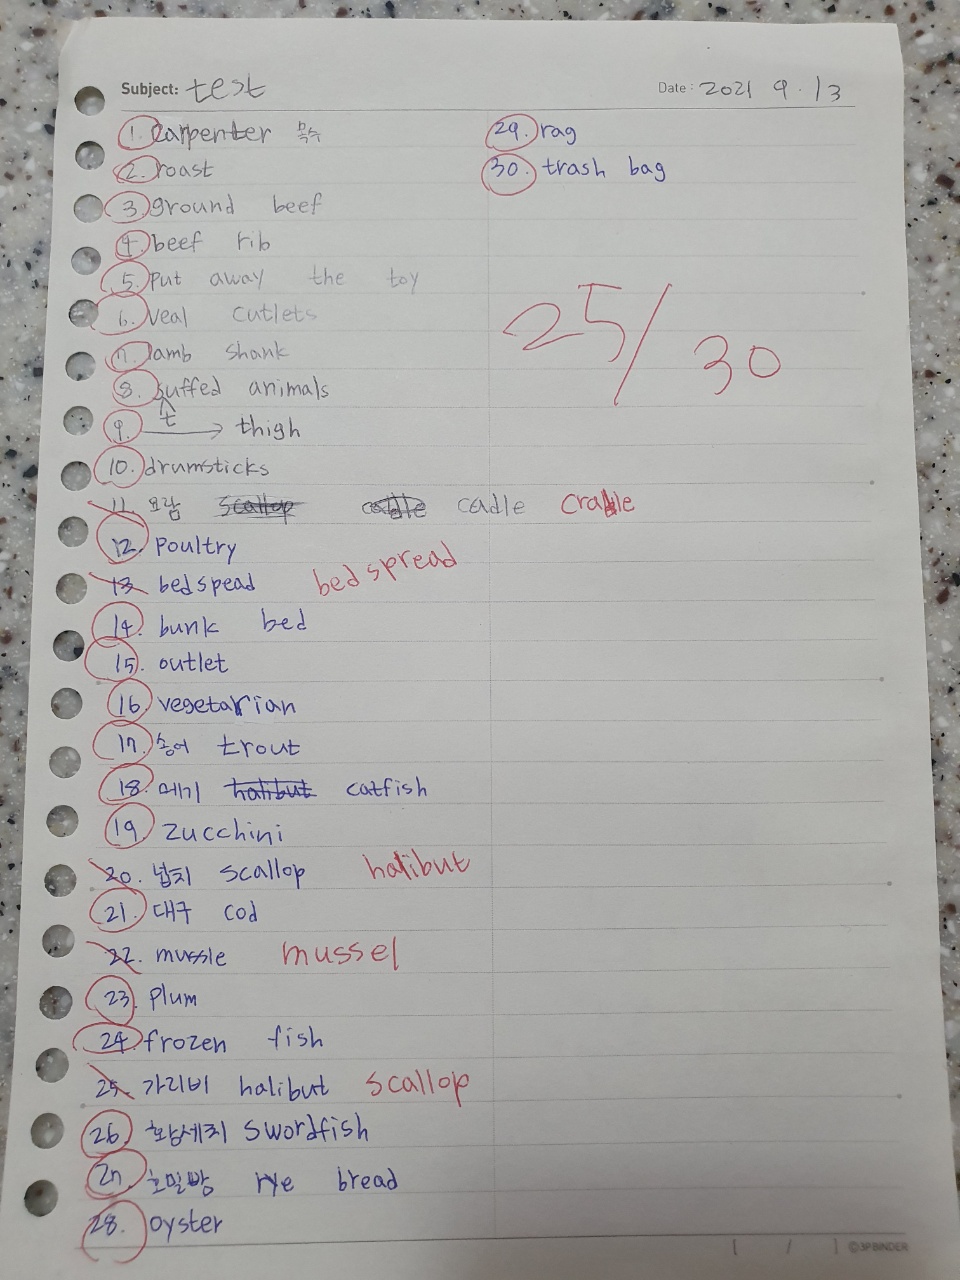 Subject: test
Date: 2021 9. 13
1. Carpenter 목수
2. roast
3. ground beef
4. beef rib
5. Put away the toy
6. Veal cutlets
7. lamb shank
8. suffed animals
t
9. → thigh
10. drumsticks
11. 요람 scallop cadle cradle
12. Poultry
13. bedspead bedspread
14. bunk bed
15. outlet
16. vegetarian
17. 송어 trout
18. 메기 halibut catfish
19. zucchini
20. 넙치 scallop halibut
21. 대구 cod
22. mussle mussel
23. Plum
24. frozen fish
25. 가리비 halibut scallop
26. 황새치 swordfish
27. 호밀빵 rye bread
28. oyster
29. rag
30. trash bag
25/30
[ / ] ©3P BINDER